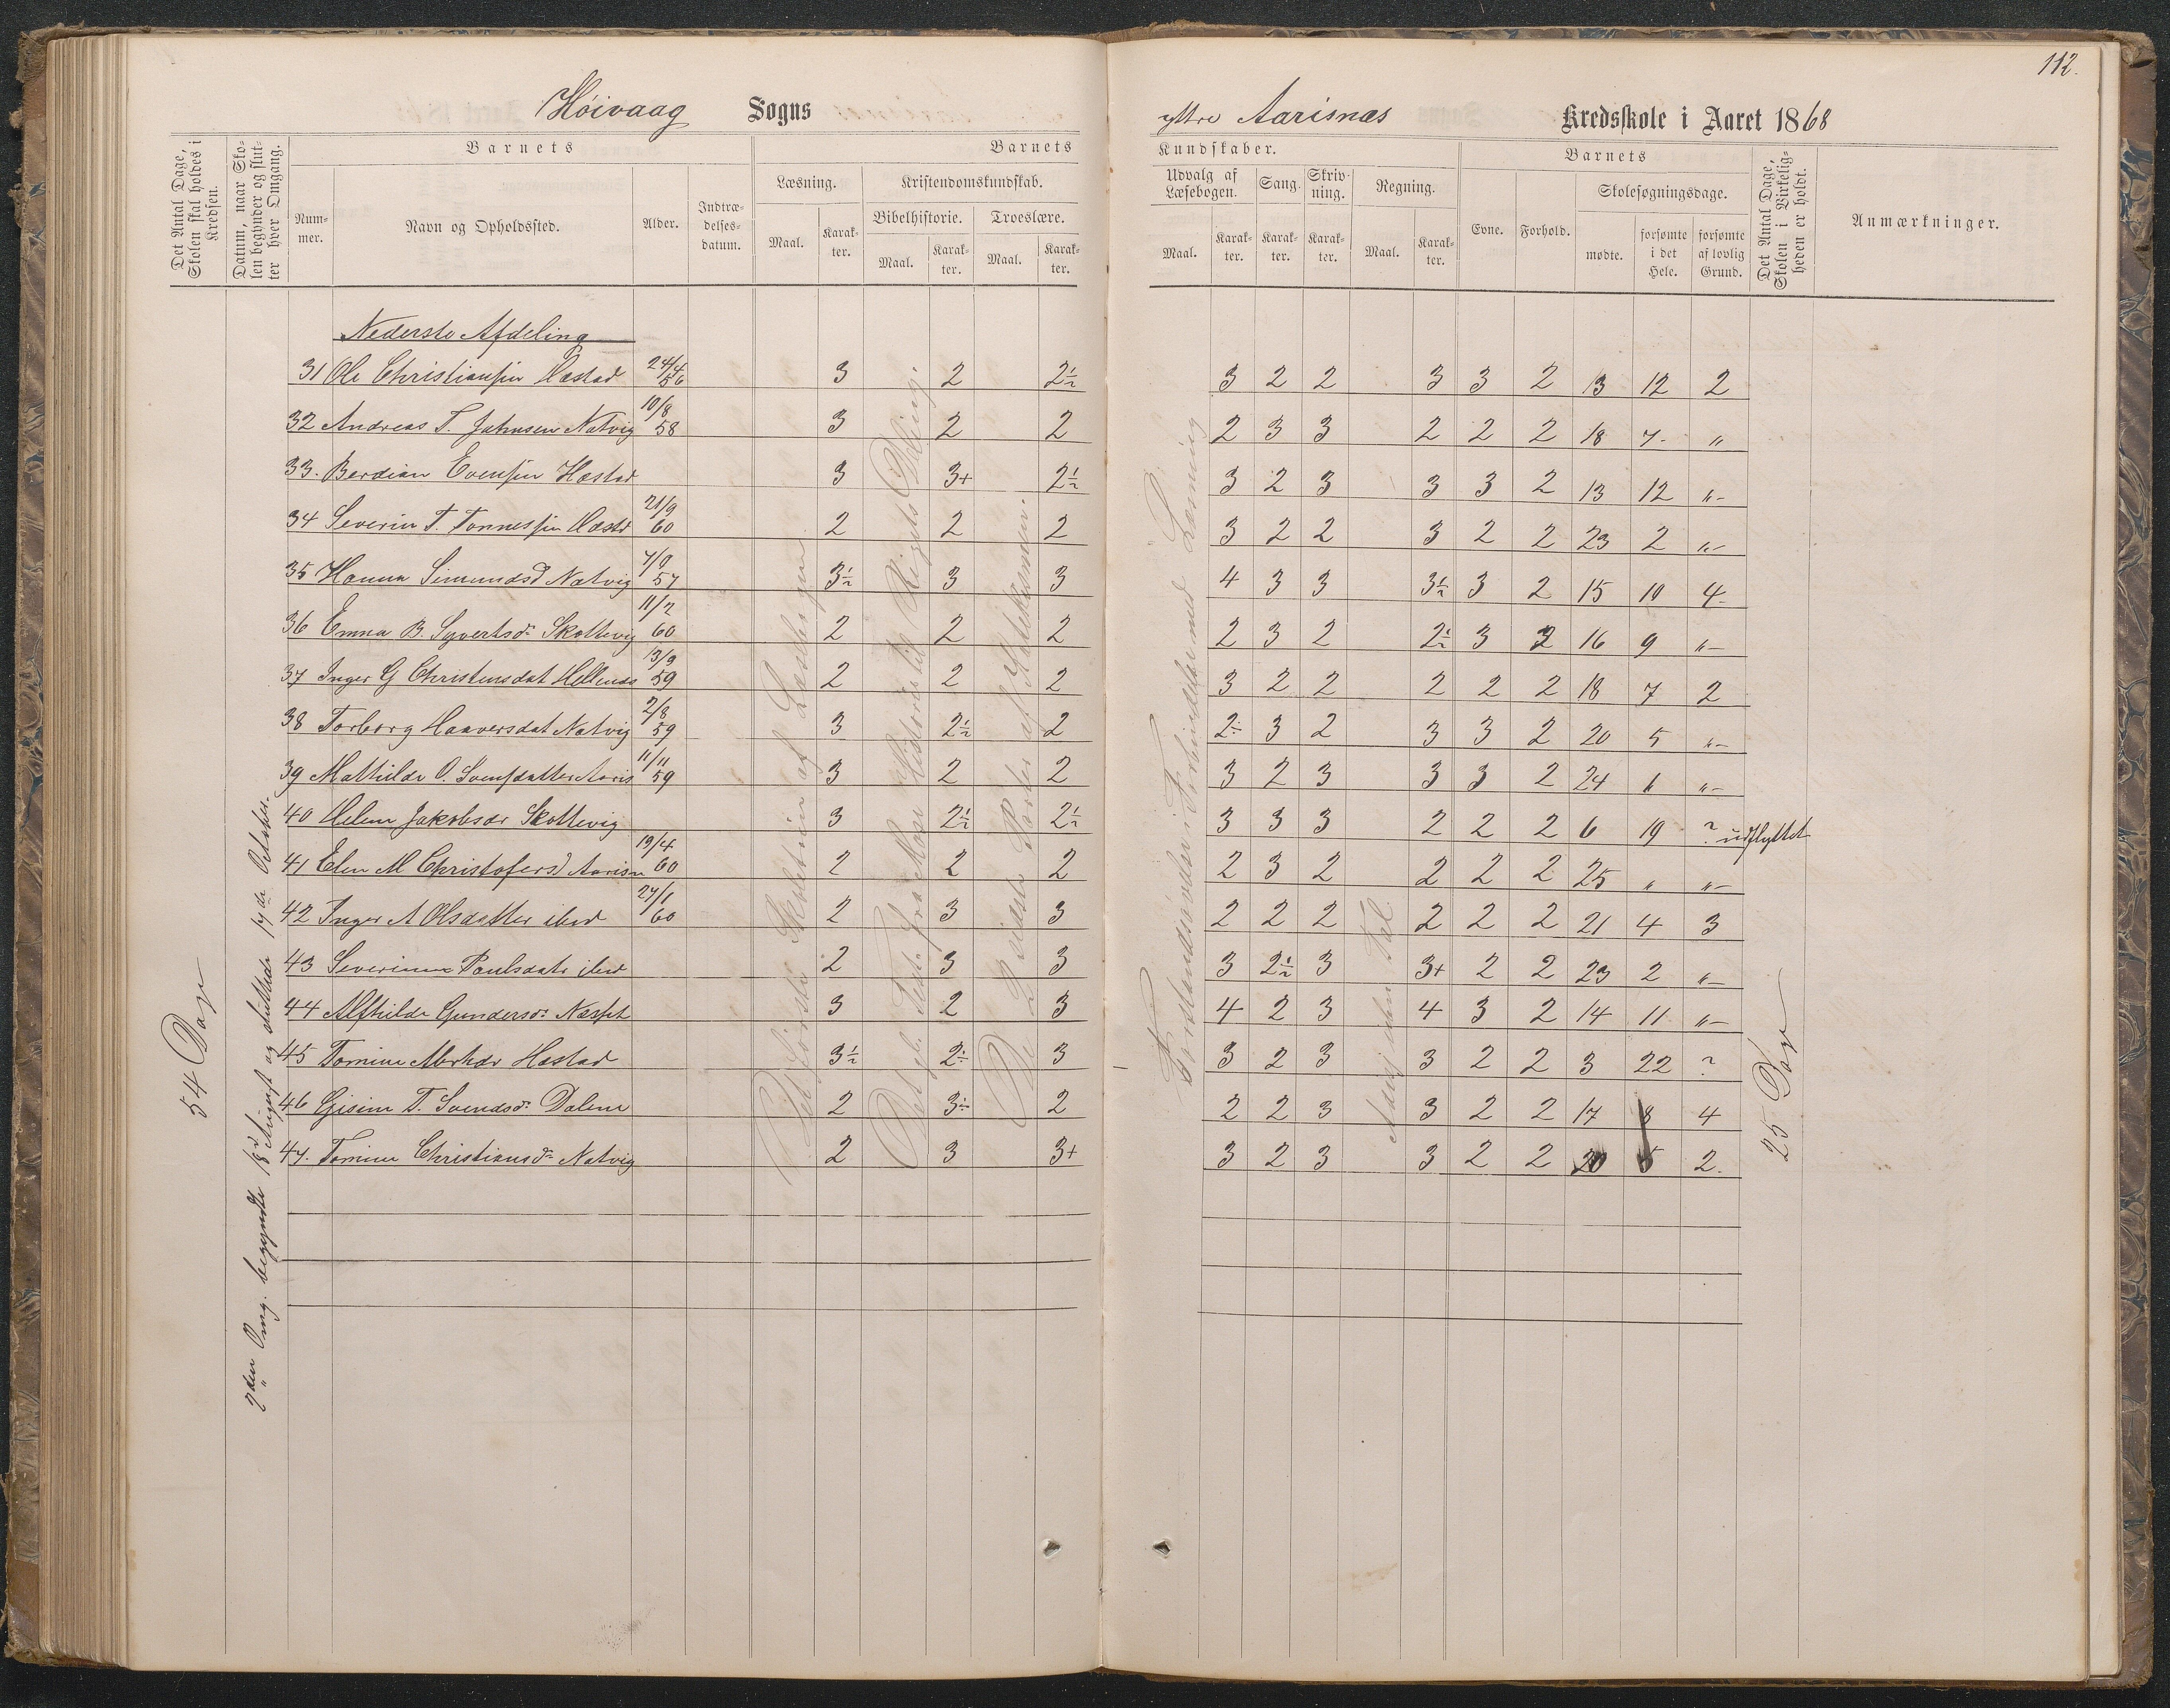 112.
Höivaag Sogns
yttre Aarisnæs Kredsskole i Aaret 1868
Det Antal Dage, Skolen skal holdes i Kredsen.
Datum, naar Skolen begynder og slutter hver Omgang.
Barnets
Nummer.
Navn og Opholdssted.
Alder.
Indtrædelsesdatum.
Barnets
Læsning.
Maal.
Karakter.
Kristendomskundskab.
Bibelhistorie.
Maal.
Karakter.
Troeslære.
Maal.
Karakter.
Kundskaber.
Udvalg af Læsebogen.
Maal.
Karakter.
Sang.
Karakter.
Skrivning.
Karakter.
Regning.
Maal.
Karakter.
Barnets
Evne.
Forhold.
Skolesøgningsdage.
mødte.
forsømte i det Hele.
forsømte af lovlig Grund.
Det Antal Dage, Skolen i Virkeligheden er holdt.
Anmærkninger.
54 Dage
2den Omg. begyndte 18d August og sluttede 17de Oktober.
Nederste Afdeling
31 Ole Christiansen Hæstad 24/4 56 3 2 2½ 3 2 2 3 3 2 13 12 2
32 Andreas T. Jahnsen Natvig 10/8 58 3 2 2 2 3 3 2 2 2 18 7 "
33. Berdian Evensen Hæstad 3 3+ 2½ 3 2 3 3 3 2 13 12 "
34 Severin T. Tønnessen Hæstd 21/9 60 2 2 2 3 2 2 3 2 2 23 2 "
35 Hanna Simundsd Natvig 7/9 57 3½ 3 3 4 3 3 3½ 3 2 15 10 4
36 Emna B. Syvertsdr Skottevig 11/2 60 2 2 2 2 3 2 2½ 3 2 16 9 "
37 Inger G Christensdat 13/9 59 2 2 2 3 2 2 2 2 2 18 7 2
38 Torborg Haaversdat Natvig 2/8 59 3 2½ 2 2÷ 3 2 3 3 2 20 5 "
39 Mathilde O. Svensdatter Aaris 11/11 59 3 2 2 3 2 3 3 3 2 24 1 "
40 Helene Jakobsdr Skottevig 3 2½ 2½ 3 3 3 2 2 2 6 19 ? udflyttet
41 Elen M Christofersd Aarisn 19/4 60 2 2 2 2 3 2 2 2 2 25 " "
42 Inger A Olsdatter ibid 27/1 60 2 3 3 2 2 2 2 2 2 21 4 3
43 Severine Paulsdatr ibid 2 3 3 3 2½ 3 3+ 2 2 23 2 "
44 Alfhilde Gundersdr Næsset 3 2 3 4 2 3 4 3 2 14 11 "
45 Tomine Hæstad 3½ 2÷ 3 3 2 3 3 2 2 3 22 ?
46 Gisine T. Svendsdr Dalene 2 3÷ 2 2 2 3 3 2 2 17 8 4
47. Tomine Christiansdr Natvig 2 3 3+ 3 2 3 3 2 2 20 5 2.
Det förste af Læsebogen
Det gle. Test. fra Mose Historie til Rigets Deling.
De 2 sidste Parter af Katekismen.
Forstandsøvelser i Forbindelse med Læsning
Tal.
25 Dage